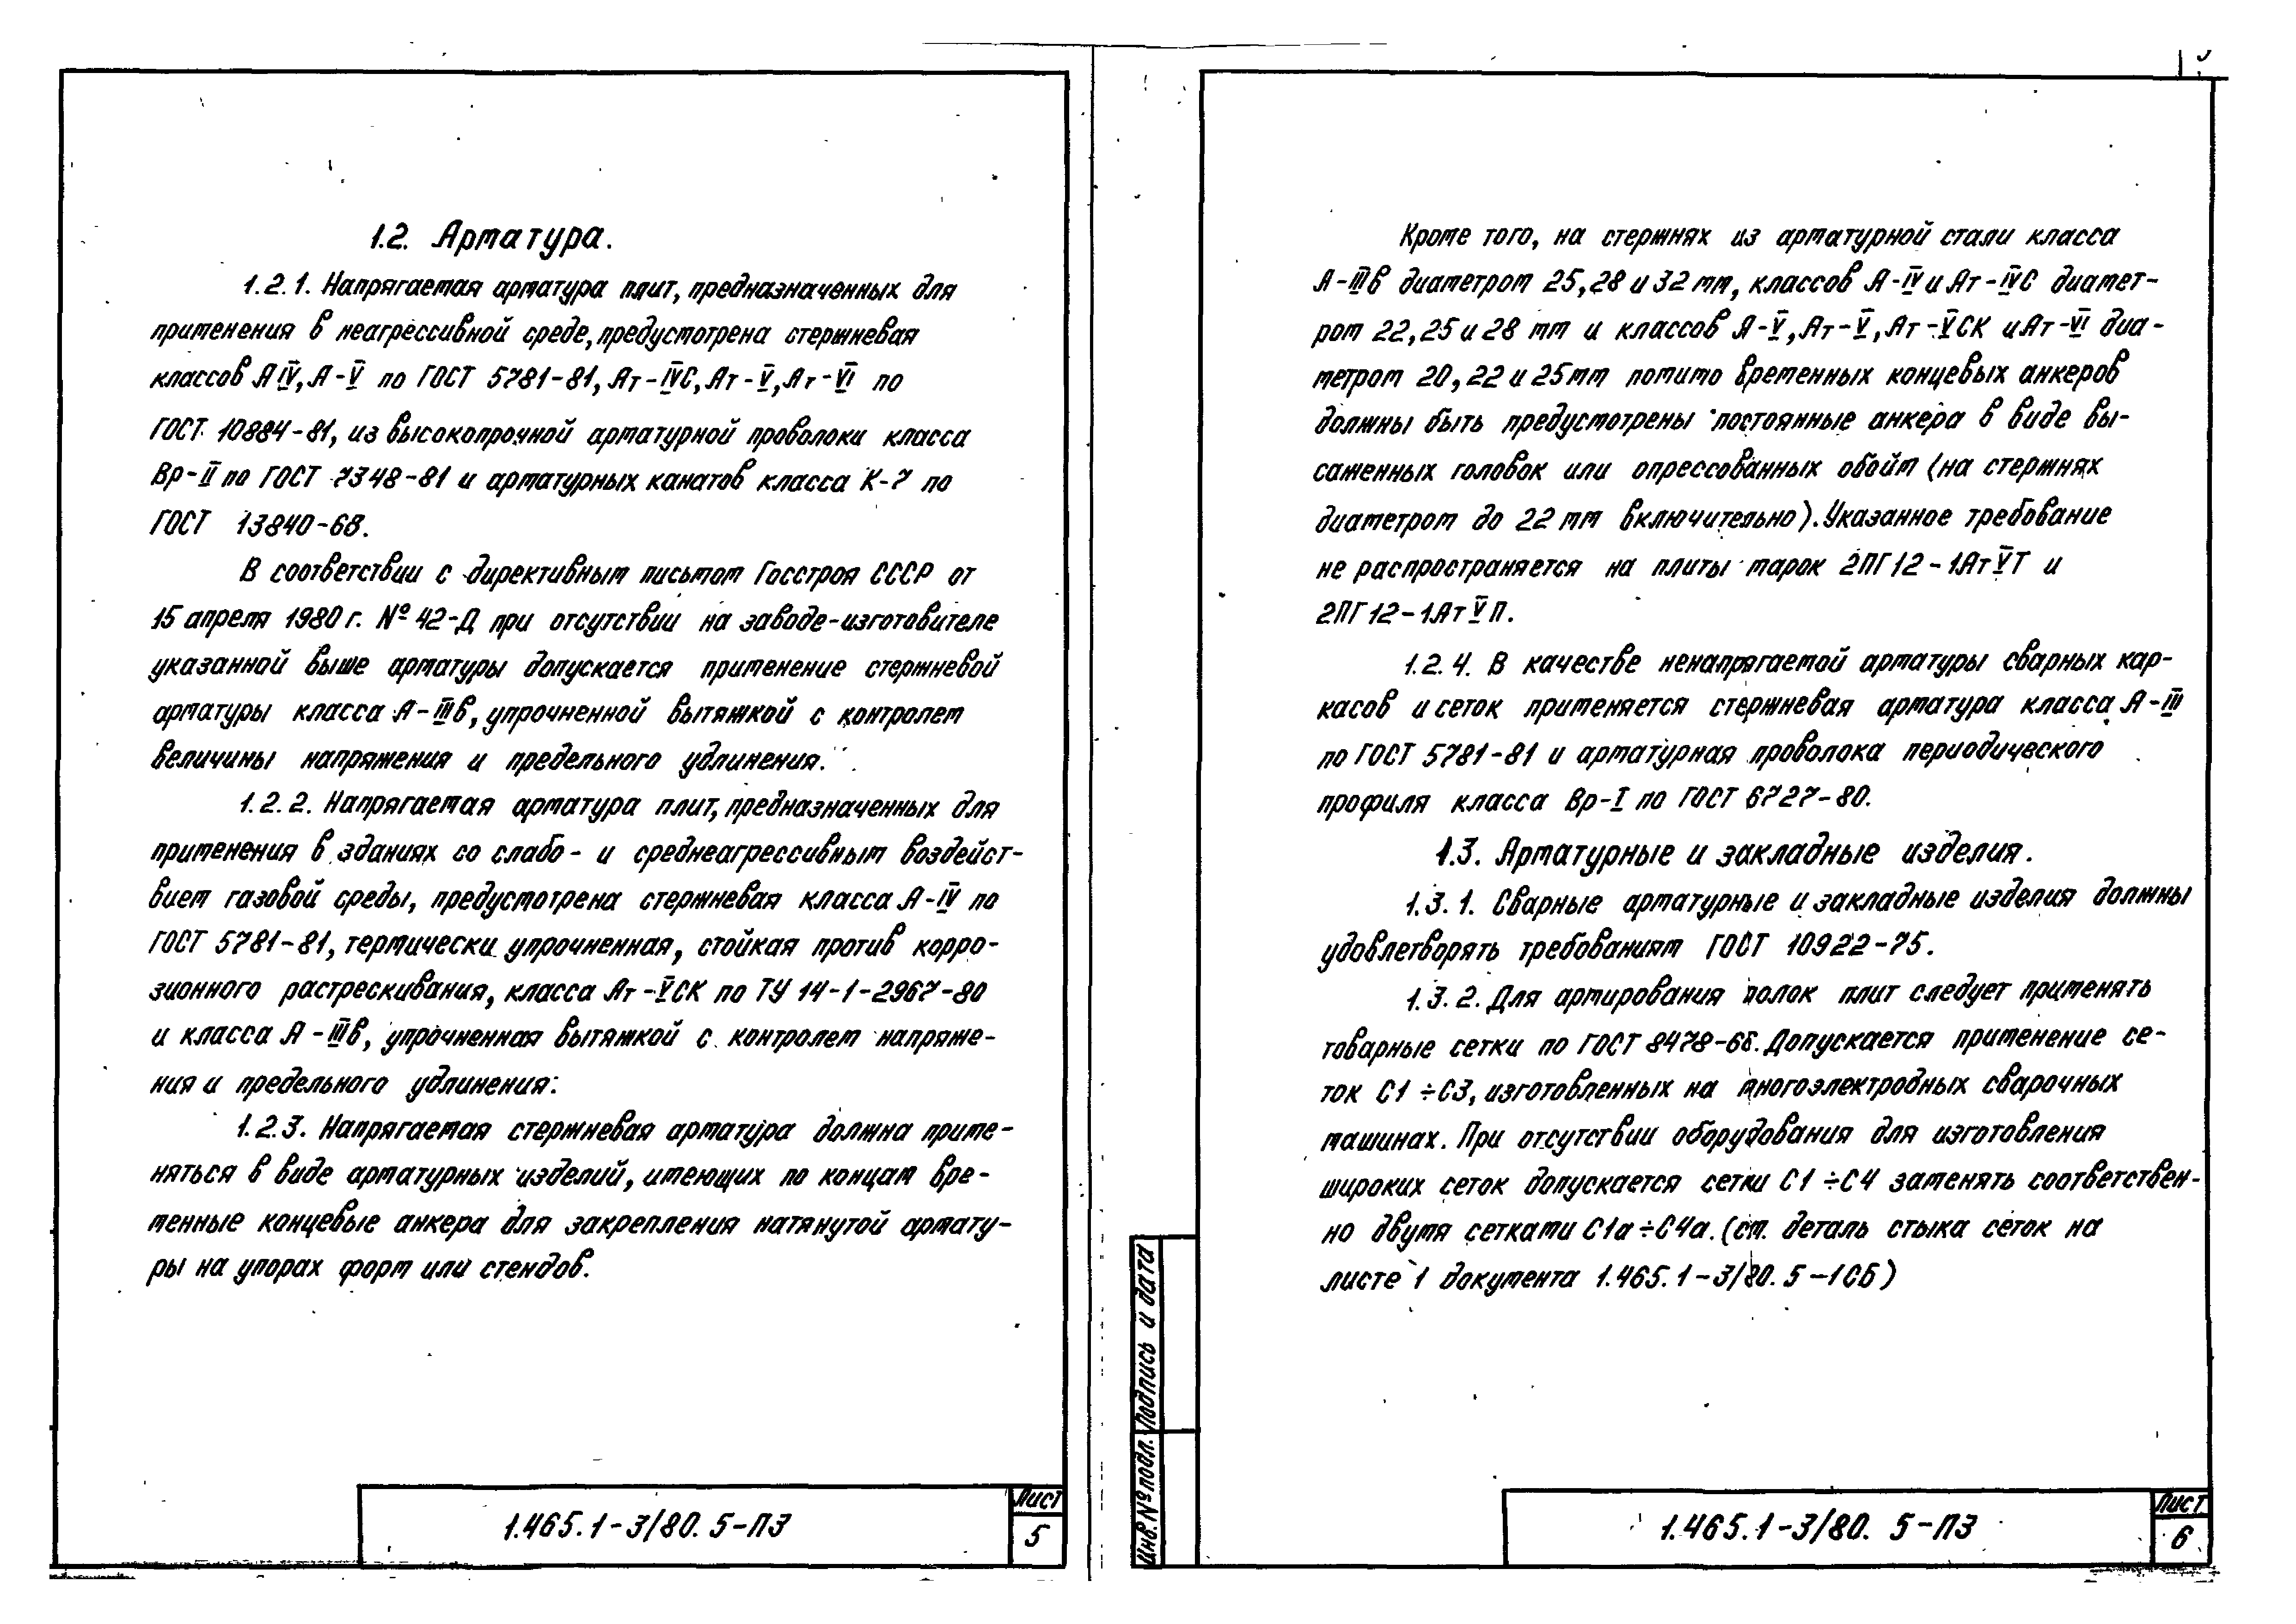 1.2. Арматура.
1.2.1. Напрягаемая арматура плит, предназначенных для
применения в неагрессивной среде, предусмотрена стержневая
классов А IV, А-V по ГОСТ 5781-81, Ат-IVС, Ат-V, Ат-VI по
ГОСТ 10884-81, из высокопрочной арматурной проволоки класса
Вр-II по ГОСТ 7348-81 и арматурных канатов класса К-7 по
ГОСТ 13840-68.
В соответствии с директивным письмом Госстроя СССР от
15 апреля 1980 г. № 42-Д при отсутствии на заводе-изготовителе
указанной выше арматуры допускается применение стержневой
арматуры класса А-IIIв, упрочненной вытяжкой с контролем
величины напряжения и предельного удлинения.
1.2.2. Напрягаемая арматура плит, предназначенных для
применения в зданиях со слабо- и среднеагрессивным воздейст-
вием газовой среды, предусмотрена стержневая класса А-IV по
ГОСТ 5781-81, термически упрочненная, стойкая против корро-
зионного растрескивания, класса Ат-VСК по ТУ 14-1-2967-80
и класса А-IIIв, упрочненная вытяжкой с контролем напряже-
ния и предельного удлинения.
1.2.3. Напрягаемая стержневая арматура должна приме-
няться в виде арматурных изделий, имеющих по концам вре-
менные концевые анкера для закрепления натянутой армату-
ры на упорах форм или стендов.
1.465.1-3/80. 5-ПЗ
Лист
5
Кроме того, на стержнях из арматурной стали класса
А-IIIв диаметром 25, 28 и 32 мм, классов А-IV и Ат-IVС диамет-
ром 22, 25 и 28 мм и классов А-V, Ат-V, Ат-VСК и Ат-VI диа-
метром 20, 22 и 25 мм помимо временных концевых анкеров
должны быть предусмотрены постоянные анкера в виде вы-
саженных головок или опрессованных обойм (на стержнях
диаметром до 22 мм включительно). Указанное требование
не распространяется на плиты марок 2ПГ12-1АтVТ и
2ПГ12-1АтVП.
1.2.4. В качестве ненапрягаемой арматуры сварных кар-
касов и сеток применяется стержневая арматура класса А-III
по ГОСТ 5781-81 и арматурная проволока периодического
профиля класса Вр-I по ГОСТ 6727-80.
1.3. Арматурные и закладные изделия.
1.3.1. Сварные арматурные и закладные изделия должны
удовлетворять требованиям ГОСТ 10922-75.
1.3.2. Для армирования полок плит следует применять
товарные сетки по ГОСТ 8478-66. Допускается применение се-
ток С1÷С3, изготовленных на многоэлектродных сварочных
машинах. При отсутствии оборудования для изготовления
широких сеток допускается сетки С1÷С4 заменять соответствен-
но двумя сетками С1а÷С4а. (см. деталь стыка сеток на
листе 1 документа 1.465.1-3/80. 5-1СБ)
Инв. № подл.
Подпись и дата
1.465.1-3/80. 5-ПЗ
Лист
6